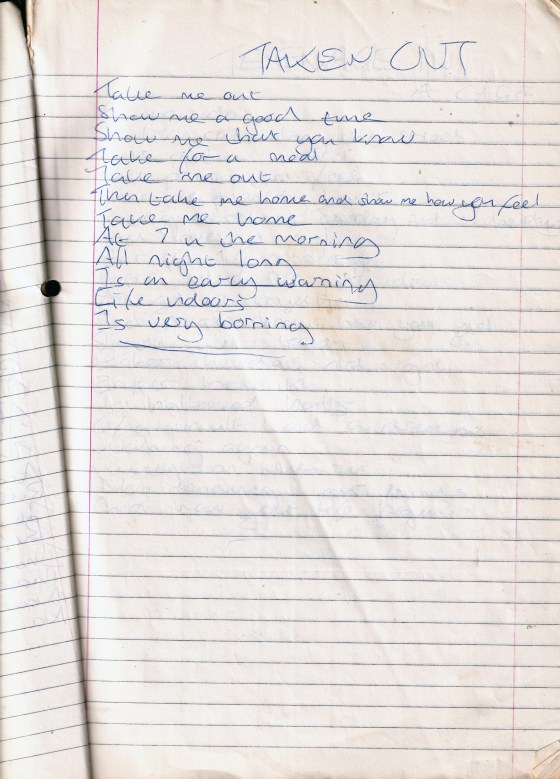 TAKEN OUT
Take me out
Show me a good time
Show me that you know
Take for a meal
Take me out
Then take me home and show me how you feel
Take me home
At 7 in the morning
All night long
Is an early warning
Life indoors
Is very borning